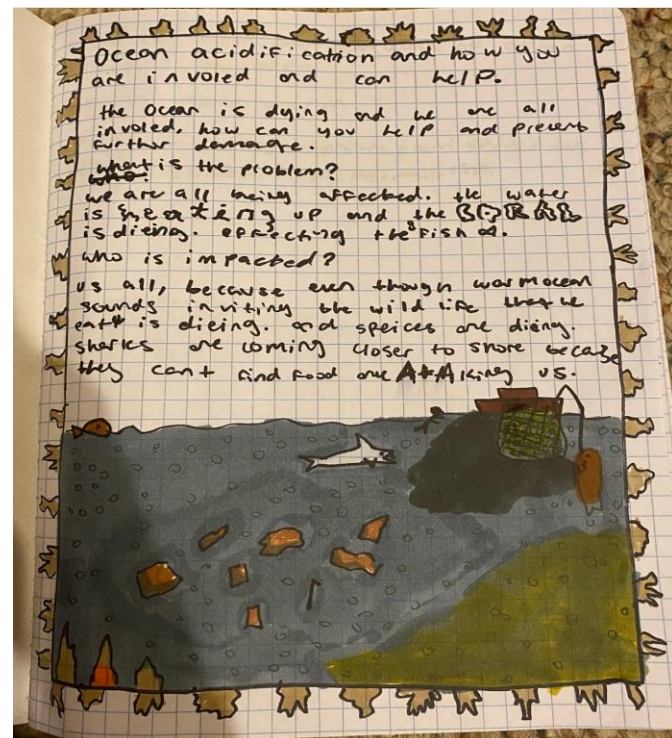 Ocean acidification and how you
are involed and can help.
the ocean is dying and we are all
involed. how can you help and prevent
further damage.
what is the problem?
we are all being affected. the water
is heating up and the CORAL
is dieing. effecting the fish
who is impacted?
us all, because even though warm ocean
sounds inviting the wild life that we
eat is dieing. and speices are dieing.
sharks are coming closer to shore because
they cant find food and AtAking us.